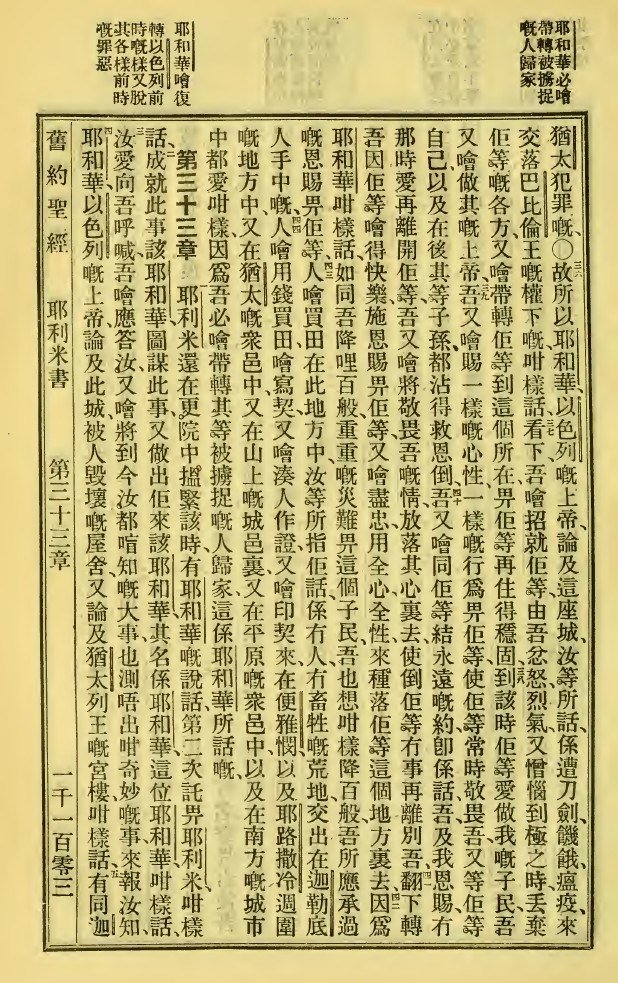 耶和華必噲
帶轉被擄捉
嘅人歸家
耶和華噲復
轉以色列前
時嘅樣又脫
其各樣前時
嘅罪惡
猶太犯罪嘅、〇三六故所以耶和華、以色列嘅上帝、論及這座城、汝等所話、係遭刀劍、饑餓、瘟疫、來
交落巴比倫王嘅權下嘅、咁樣話、三七看下、吾噲招就佢等由吾忿怒、烈氣、又憎惱到極之時、丢棄
佢等嘅各方、又噲帶轉佢等到這個所在、畀佢等再住得穩固、三八到該時佢等愛做我嘅子民、吾
又噲做其嘅上帝、三九吾又噲賜一樣嘅心性、一樣嘅行為畀佢等、使佢等常時敬畏吾、又等佢等
自己、以及在後其等子孫、都沾得救恩倒、四十吾又噲同佢等結永遠嘅約、卽係話、吾及我恩賜、冇
那時愛再離開佢等、吾又噲將敬畏吾嘅情、放落其心裏去、使倒佢等冇事再離別吾、四一翻下轉
吾因佢等噲得快樂、施恩賜畀佢等、又噲盡忠用全心全性來種落佢等這個地方裏去、四二因爲
耶和華咁樣話、如同吾降哩百般重重嘅災難畀這個子民、吾也想咁樣降百般吾所應承過
嘅恩賜畀佢等、四三人噲買田在此地方中、汝等所指佢話、係冇人、冇畜牲嘅荒地、交出在迦勒底
人手中嘅、四四人噲用錢買田、噲寫契、又噲湊人作證、又噲印契、來在便雅憫、以及耶路撒冷週圍
嘅地方中、又在猶太嘅衆邑中、又在山上嘅城邑裏、又在平原嘅衆邑中、以及在南方嘅城市
中、都愛咁樣、因爲吾必噲帶轉其等被擄捉嘅人歸家、這係耶和華所話嘅、
第三十三章　耶利米還在更院中搵緊、該時有耶和華嘅說話、第二次託畀耶利米、咁樣
話、二成就此事該耶和華、圖謀此事、又做出佢來該耶和華、其名係耶和華、這位耶和華咁樣話、
三汝愛向吾呼喊、吾噲應答汝、又噲將到今汝都唔知嘅大事、也測唔出咁奇妙嘅事、來報汝知、
四耶和華、以色列嘅上帝、論及此城被人毀壞嘅屋舍、又論及猶太列王嘅宮樓、咁樣話、五有同迦
舊約聖經　耶利米書　第三十三章　一千一百零三